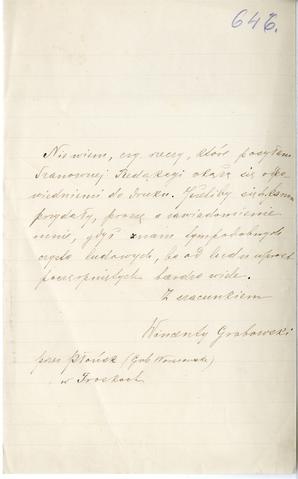 646.
Nie wiem, czy rzeczy, które posyłam
Szanownej Redakcyi okażą się odpo
wiedniemi do druku. Jeśliby się
przydały, proszę o zawiadomienie
mnie, gdyż znam tym podobnych
czysto ludowych, bo od ludu wprost
poczerpniętych bardzo wiele.
Z szacunkiem
Wincenty Grabowski
przez Płońsk (Gub Warszawska)
w Troskach